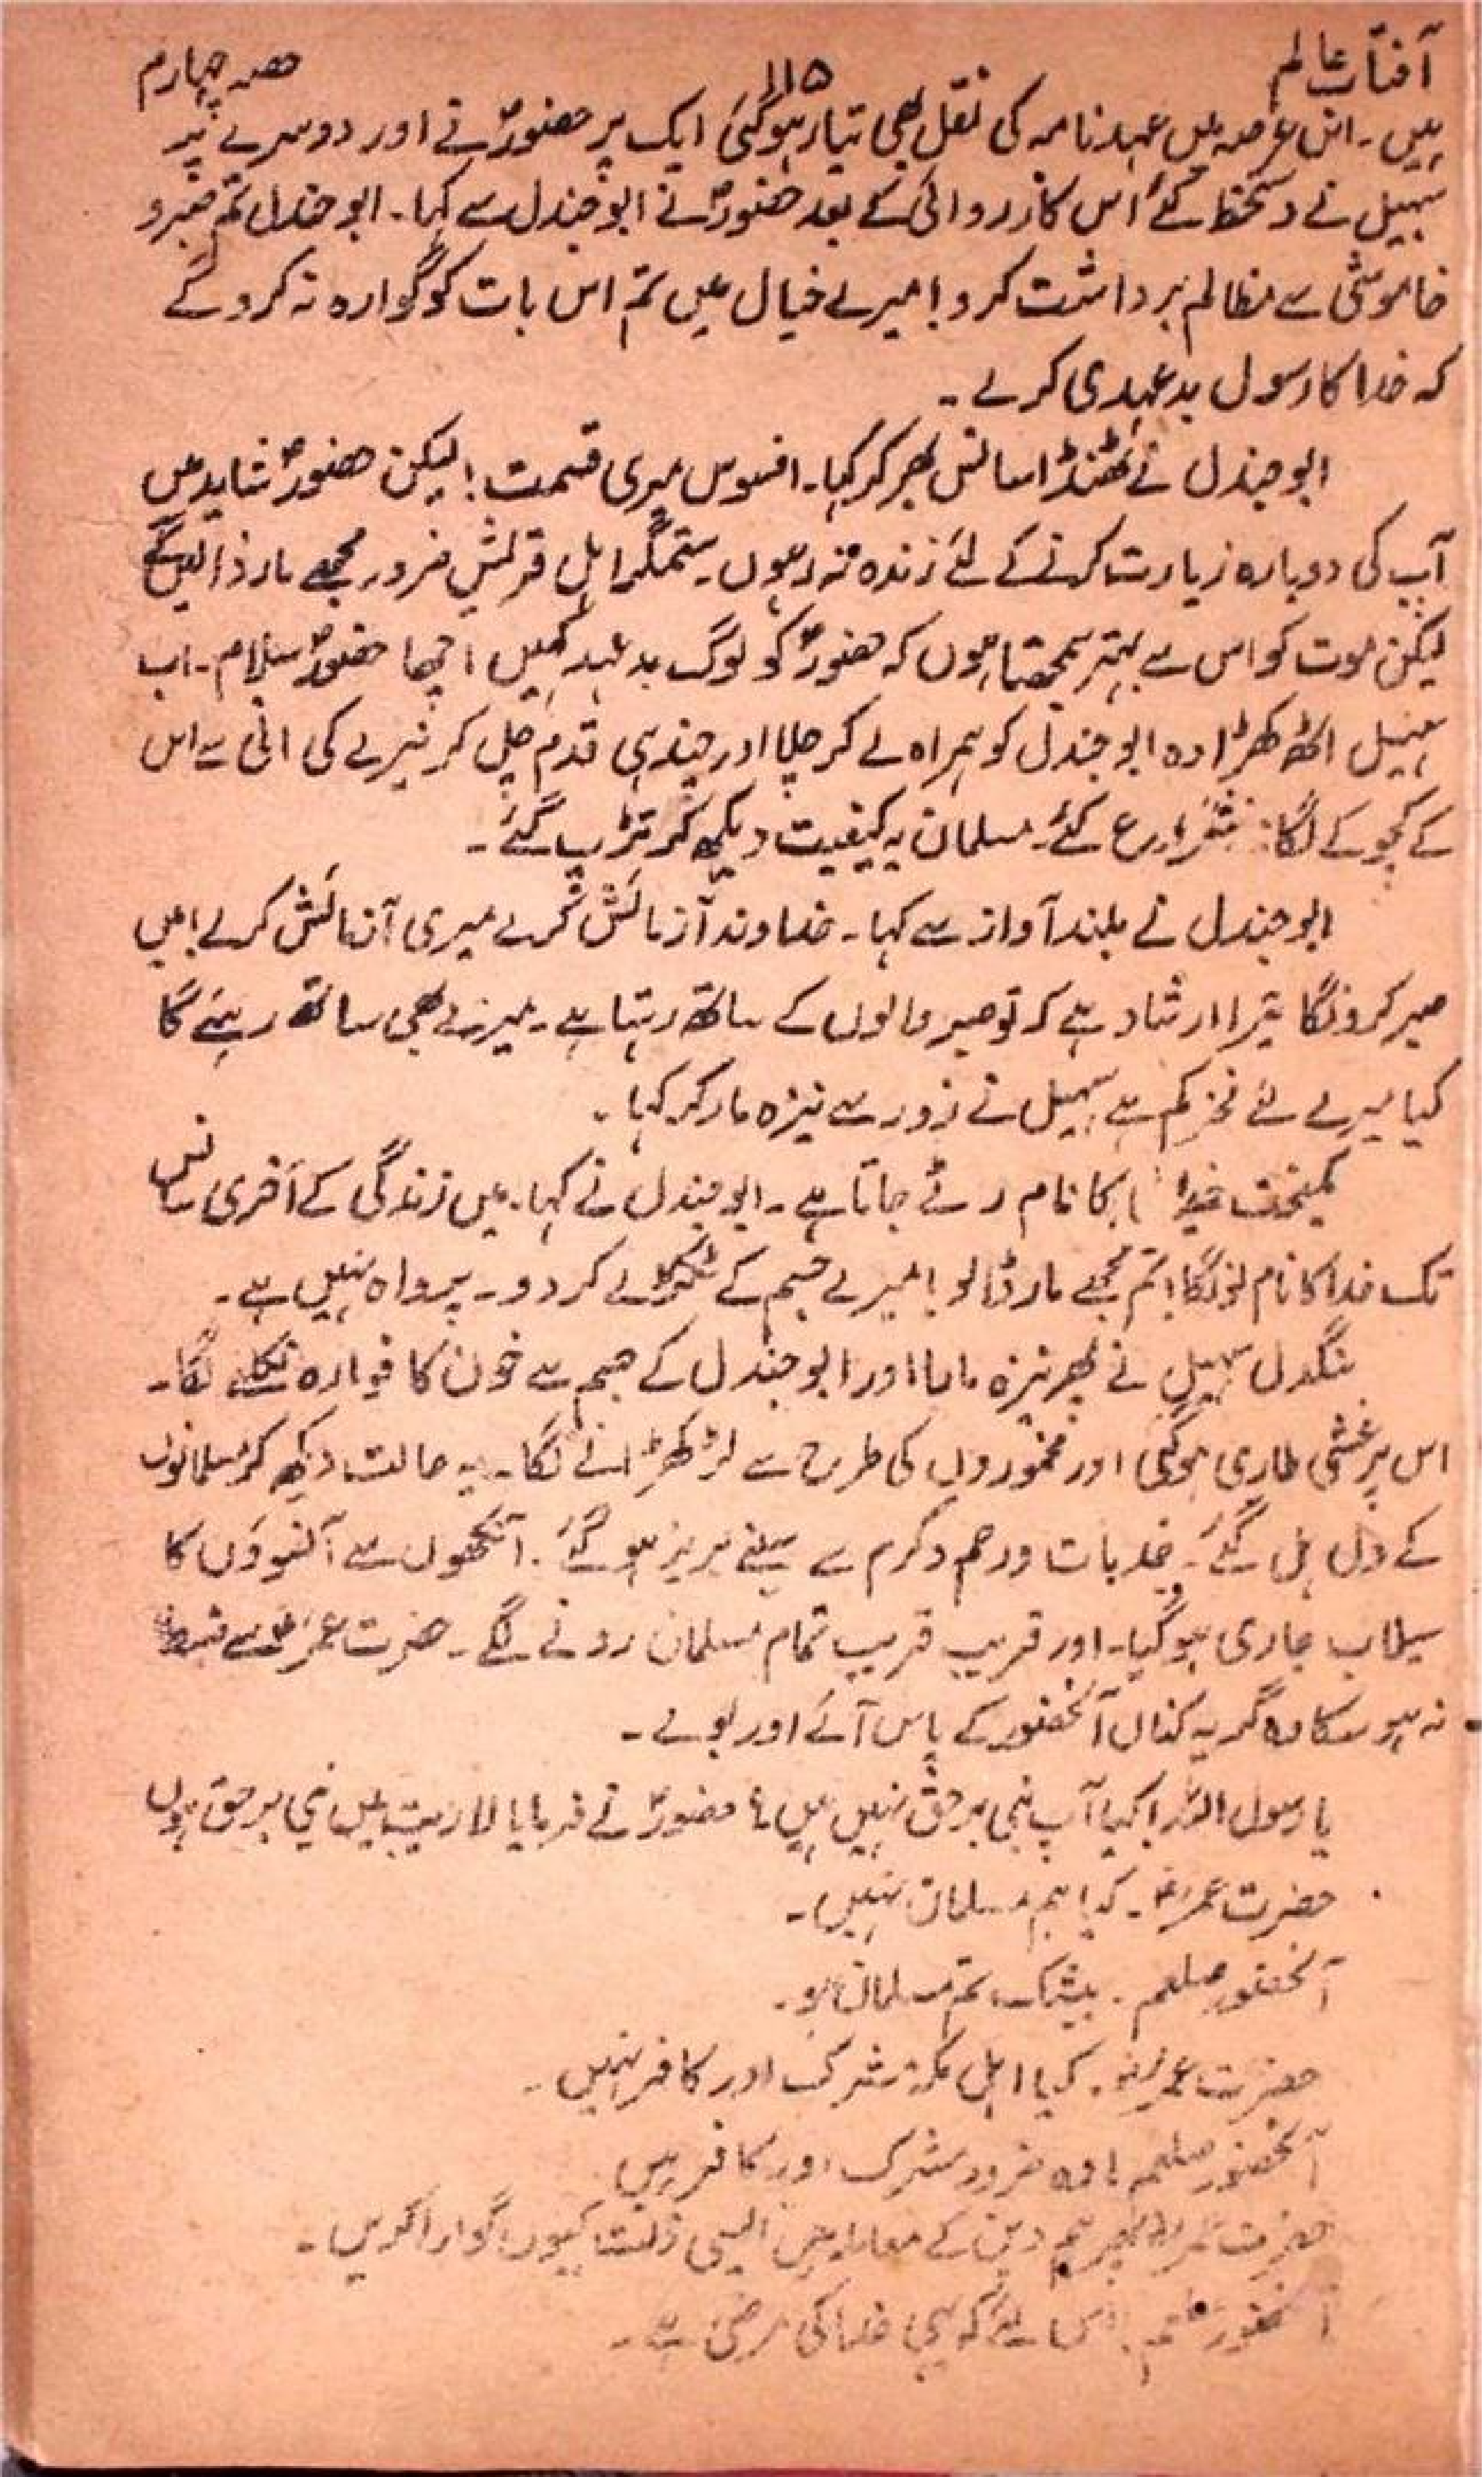 آفتاب عالم ۱۱۵ حصہ چہارم
ہیں۔ اس عرصہ میں عہد نامہ کی نقل بھی تیار ہو گئی ایک پر حضورؐ نے اور دوسرے پر
سہیل نے دستخط کئے اس کارروائی کے بعد حضورؐ نے ابو جندل سے کہا۔ ابو جندل تم صبر و
خاموشی سے مظالم برداشت کرو! میرے خیال میں تم اس بات کو گوارہ نہ کرو گے
کہ خدا کا رسول بدعہدی کرے۔
ابو جندل نے ٹھنڈا سانس بھر کر کہا۔ افسوس میری قسمت! لیکن حضورؐ شاید میں
آپ کی دوبارہ زیارت کرنے کے لئے زندہ نہ رہوں۔ ستمگر اہل قریش ضرور مجھے مار ڈالیں گے
لیکن موت کو اس سے بہتر سمجھتا ہوں کہ حضورؐ کو لوگ بدعہد کہیں اچھا حضورؐ سلام۔ اب
سہیل اٹھ کھڑا وہ ابو جندل کو ہمراہ لے کر چلا اور چند ہی قدم چل کر نیزے کی انی سے اس
کے کچوکے لگانے شروع کئے۔ مسلمان یہ کیفیت دیکھ کر تڑپ گئے۔
ابو جندل نے بلند آواز سے کہا۔ خداوند آزمائش کرلے میری آزمائش کرلے! میں
صبر کرونگا تیرا ارشاد ہے کہ تو صبر والوں کے ساتھ رہتا ہے۔ میرے بھی ساتھ رہئے گا
کیا میرے لئے فخر کم ہے سہیل نے زور سے نیزہ مار کر کہا۔
کمبخت خدا کا نام رٹے جاتا ہے۔ ابو جندل نے کہا۔ میں زندگی کے آخری سانس
تک خدا کا نام لونگا! تم مجھے مار ڈالو! میرے جسم کے ٹکڑے کر دو۔ پرواہ نہیں ہے۔
سنگدل سہیل نے پھر نیزہ مارا اور ابو جندل کے جسم سے خون کا فوارہ نکلنے لگا۔
اس پر غشی طاری ہو گئی اور مخموروں کی طرح سے لڑکھڑانے لگا۔ یہ حالت دیکھ کر مسلمانوں
کے دل ہل گئے۔ جذبات ورحم وکرم سے سینے لبریز ہو گئے۔ آنکھوں سے آنسوؤں کا
سیلاب جاری ہو گیا۔ اور قریب قریب تمام مسلمان رونے لگے۔ حضرت عمرؓ سے ضبط
نہ ہو سکا وہ گریہ کناں آنحضورؐ کے پاس آئے اور بولے۔
یا رسول اللہ! کیا آپ نبی برحق نہیں ہیں؟ حضورؐ نے فرمایا لاریب میں نبی برحق ہوں
حضرت عمرؓ۔ کیا ہم مسلمان نہیں۔
آنحضور صلعم۔ بیشک تم مسلمان ہو۔
حضرت عمرؓ۔ کیا اہل مکہ مشرک اور کافر نہیں۔
آنحضور صلعم! وہ ضرور مشرک اور کافر ہیں
حضرت عمرؓ پھر ہم دین کے معاملہ میں ایسی ذلت کیوں گوارا کریں۔
آنحضور صلعم۔ اس لئے کہ یہی خدا کی مرضی ہے۔